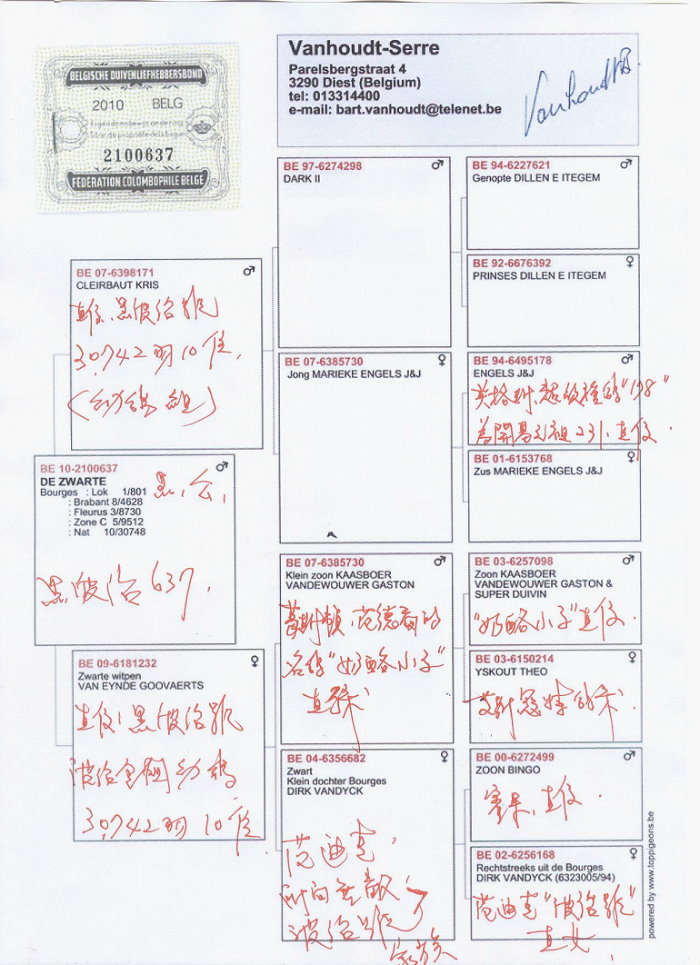 BELGISCHE DUIVENLIEFHEBBERSBOND
2010 BELG
2100637
FEDERATION COLOMBOPHILE BELGE
Vanhoudt-Serre
Parelsbergstraat 4
3290 Diest (Belgium)
tel: 013314400
e-mail: bart.vanhoudt@telenet.be
BE 97-6274298 ♂
DARK II
BE 94-6227621 ♂
Genopte DILLEN E ITEGEM
BE 92-6676392 ♀
PRINSES DILLEN E ITEGEM
BE 07-6398171 ♂
CLEIRBAUT KRIS
直仔、黑波治號
30742羽10位.
(幼鴿組)
BE 07-6385730 ♀
Jong MARIEKE ENGELS J&J
BE 94-6495178 ♂
ENGELS J&J
"198"
直仔.
BE 01-6153768 ♀
Zus MARIEKE ENGELS J&J
BE 10-2100637 ♂
DE ZWARTE
Bourges : Lok 1/801
: Brabant 8/4628
: Fleurus 3/8730
: Zone C 5/9512
: Nat 10/30748
黑,公,
黑波治637.
BE 07-6385730 ♂
Klein zoon KAASBOER
VANDEWOUWER GASTON
名鴿"奶酪小子"
直孫
BE 03-6257098 ♂
Zoon KAASBOER
VANDEWOUWER GASTON &
SUPER DUIVIN
"奶酪小子"直仔.
BE 03-6150214 ♀
YSKOUT THEO
BE 09-6181232 ♀
Zwarte witpen
VAN EYNDE GOOVAERTS
直仔:黑波治號
波治全國幼鴿
30742羽10位
BE 04-6356682 ♀
Zwart
Klein dochter Bourges
DIRK VANDYCK
范迪克,
所向無敵
波治號
家族
BE 00-6272499 ♂
ZOON BINGO
賓果,直仔.
BE 02-6256168 ♀
Rechtstreeks uit de Bourges
DIRK VANDYCK (6323005/94)
范迪克"波治號"
直女
powered by www.toppigeons.be